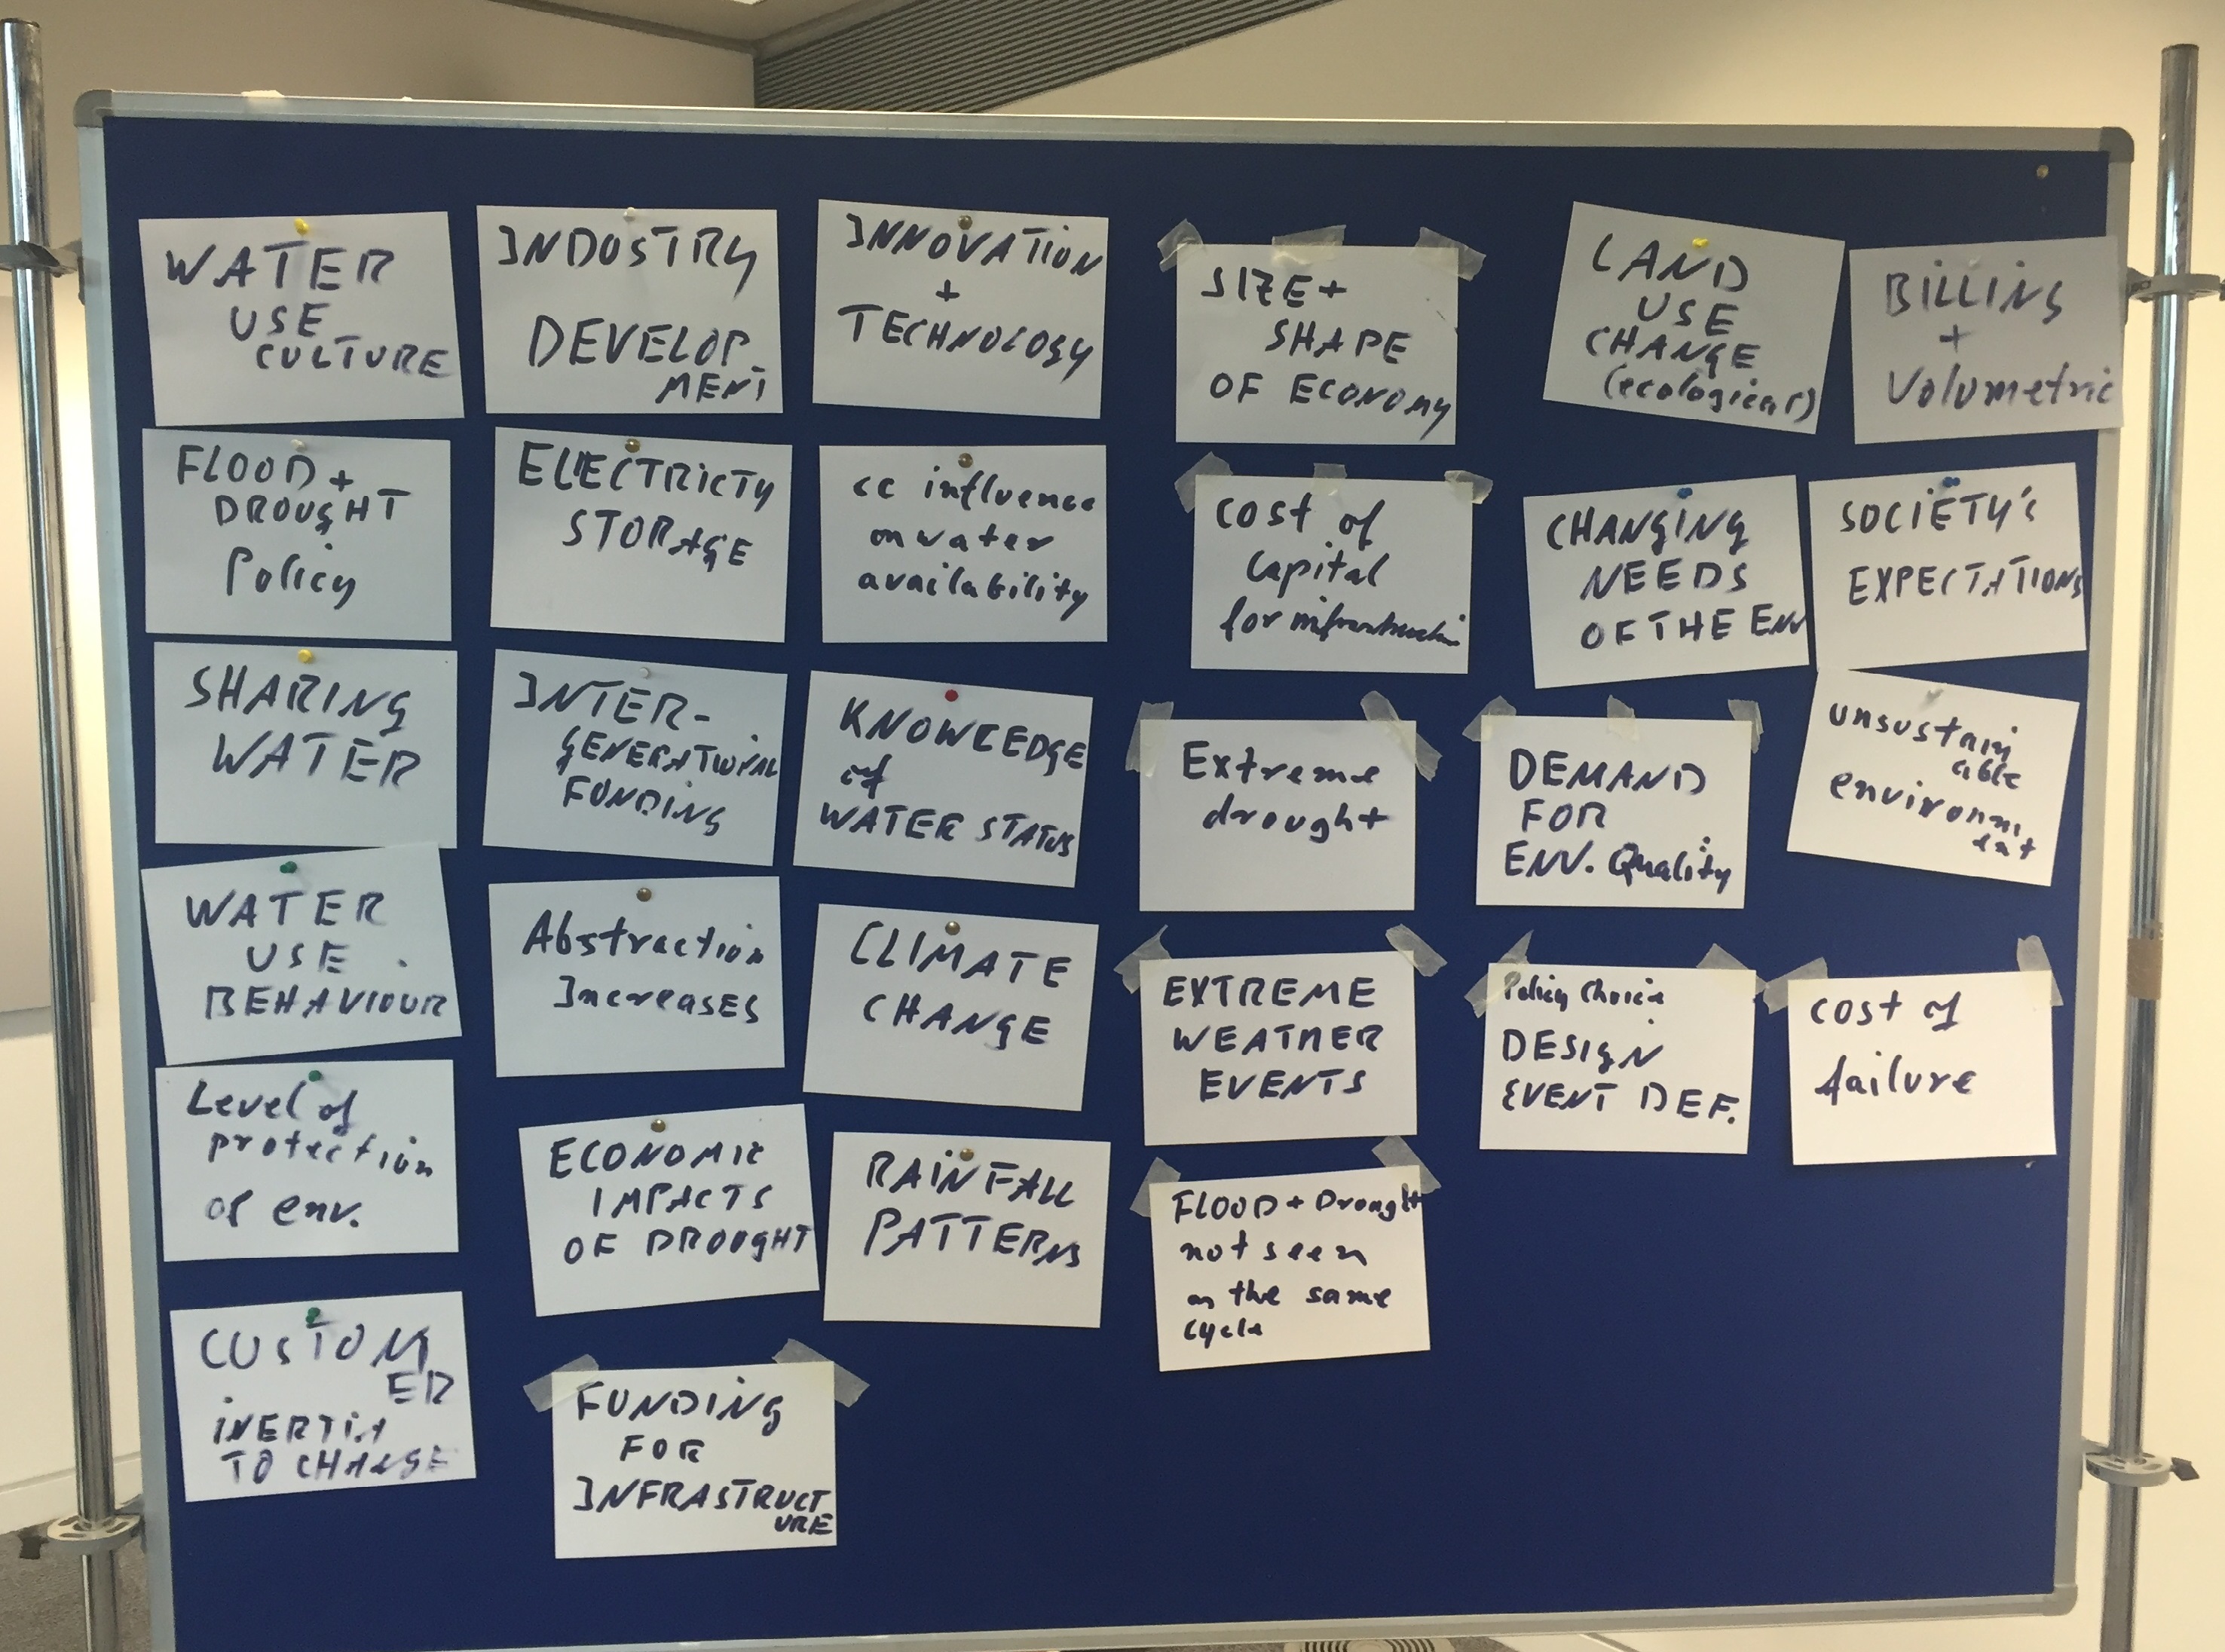 WATER
USE
CULTURE
FLOOD +
DROUGHT
Policy
SHARING
WATER
WATER
USE
BEHAVIOUR
Level of
protection
of env.
CUSTOM
ER
INERTIA
TO CHANGE
INDUSTRY
DEVELOP
MENT
ELECTRICTY
STORAGE
INTER-
GENERATIONAL
FUNDING
Abstraction
Increases
ECONOMIC
IMPACTS
OF DROUGHT
FUNDING
FOR
INFRASTRUCT
URE
INNOVATION
+
TECHNOLOGY
cc influence
on water
availability
KNOWLEDGE
of
WATER STATUS
CLIMATE
CHANGE
RAINFALL
PATTERNS
SIZE +
SHAPE
OF ECONOMY
Cost of
Capital
for infrastructure
Extreme
drought
EXTREME
WEATHER
EVENTS
FLOOD + Drought
not seen
as the same
cycle
LAND
USE
CHANGE
(ecological)
CHANGING
NEEDS
OF THE ENV
DEMAND
FOR
ENV. Quality
Policy Choice
DESIGN
EVENT DEF.
BILLING
+
Volumetric
SOCIETY'S
EXPECTATIONS
unsustain
able
environm
ent
cost of
failure